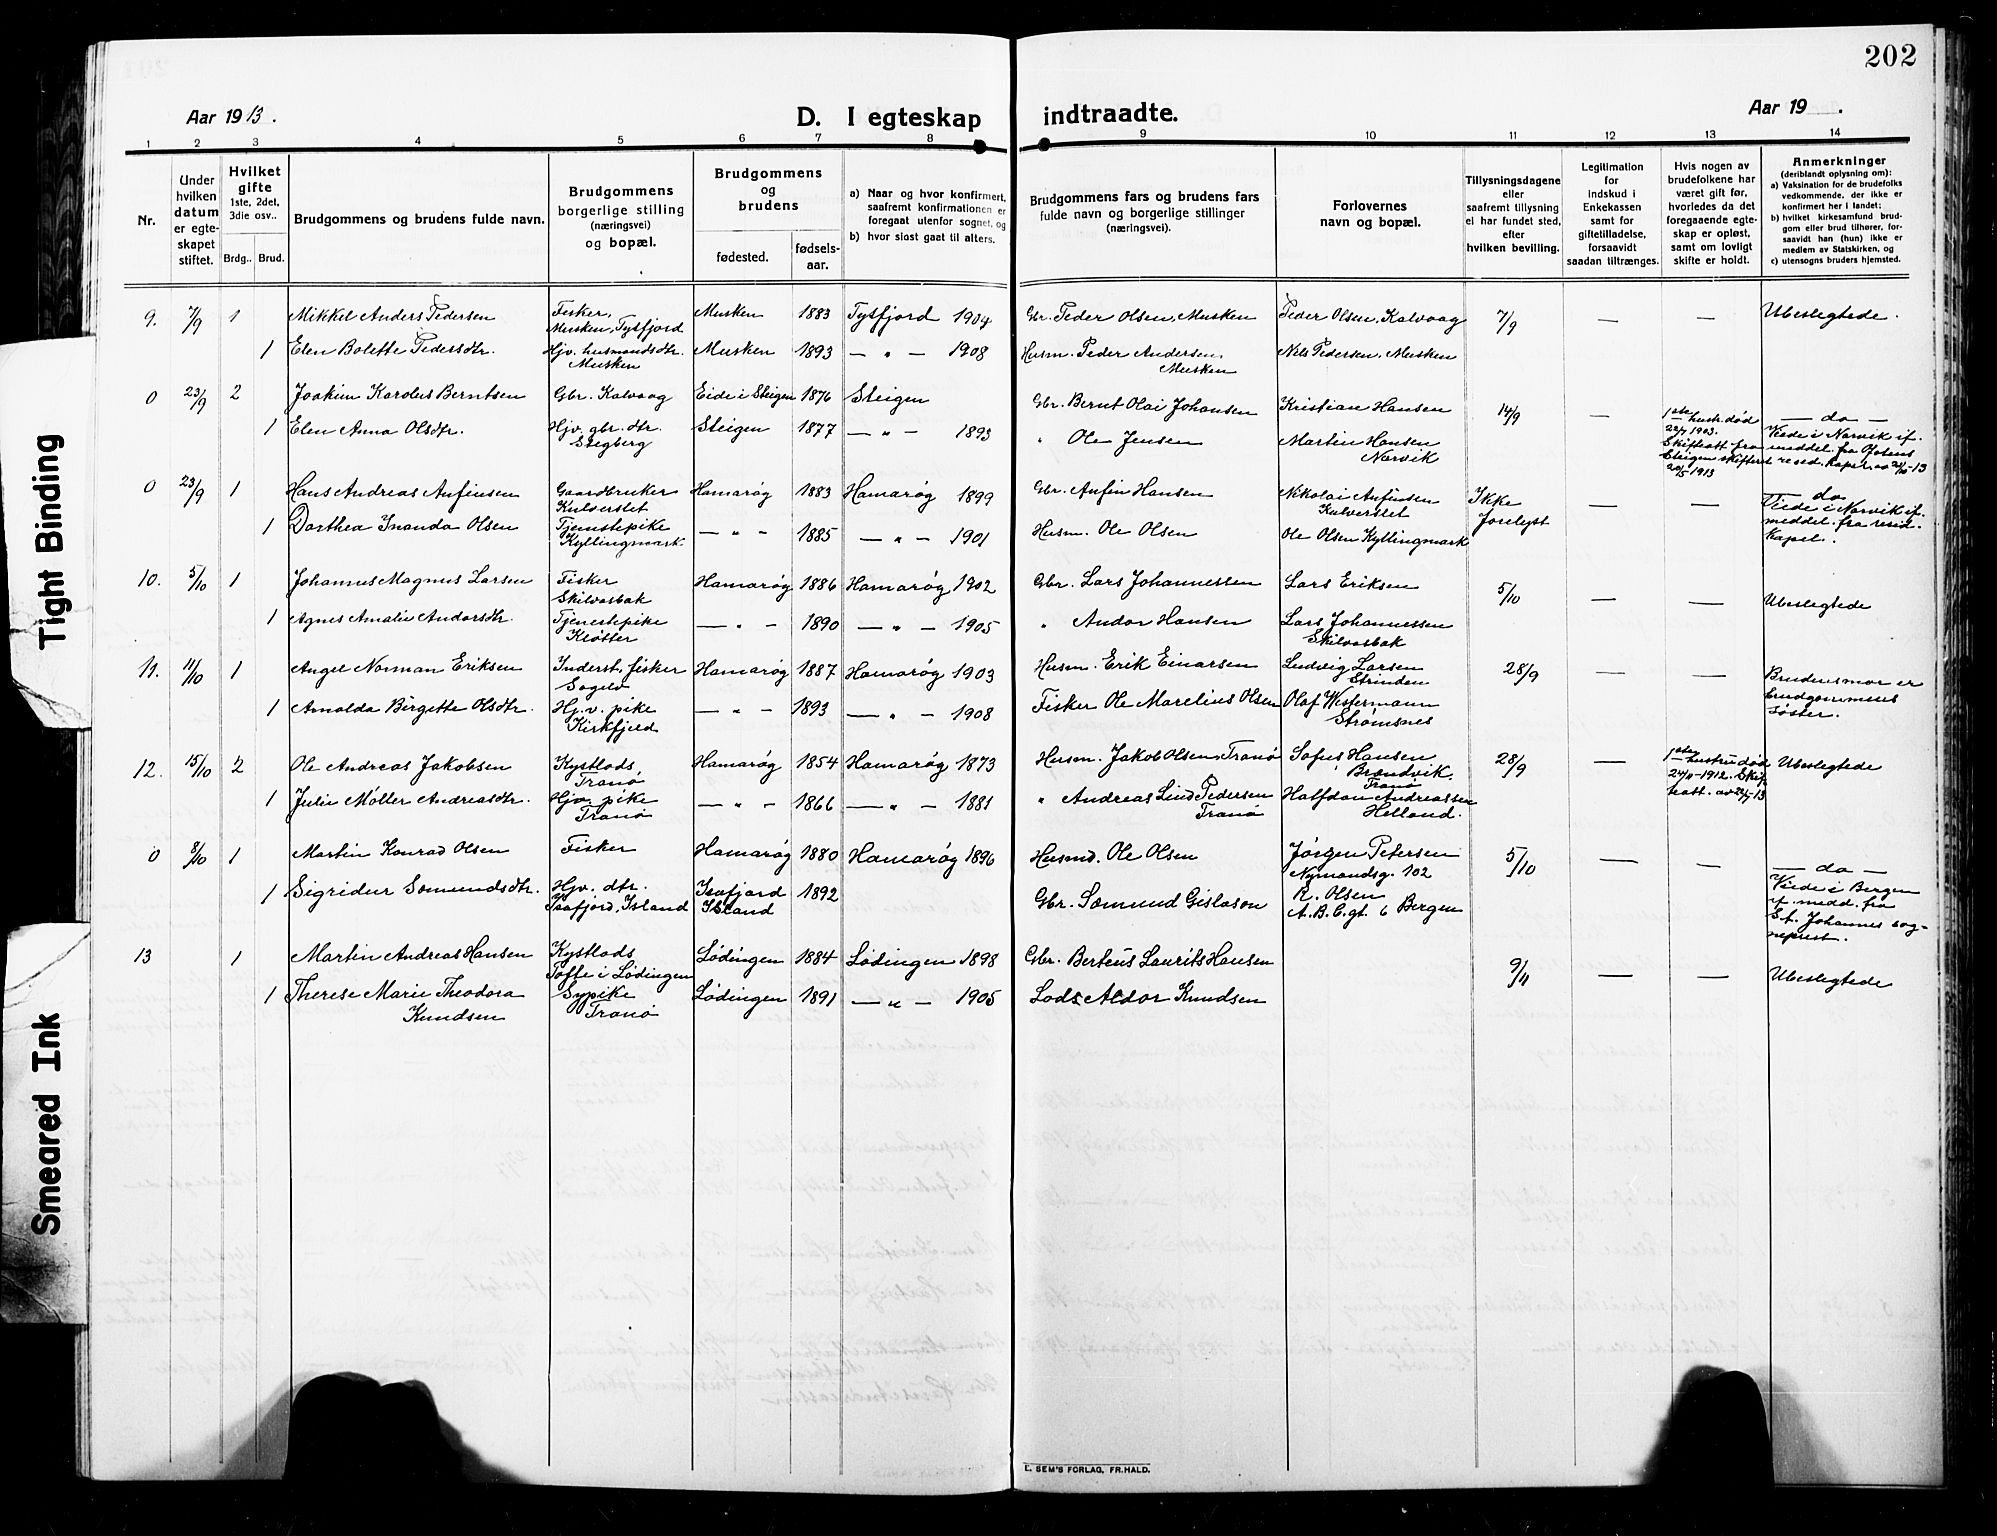 202
Aar 1913.
D. I egteskap indtraadte.
Aar 19 .
1 2 3 4 5 6 7 8 9 10 11 12 13 14
Nr.
Under hvilken datum er egteskapet stiftet.
Hvilket gifte 1ste, 2det, 3die osv..
Brdg.. Brud.
Brudgommens og brudens fulde navn.
Brudgommens borgerlige stilling (næringsvei) og bopæl.
Brudgommens og brudens
fødested.
fødselsaar.
a) Naar og hvor konfirmert, saafremt konfirmationen er foregaat utenfor sognet, og
b) hvor sidst gaat til alters.
Brudgommens fars og brudens fars fulde navn og borgerlige stillinger (næringsvei).
Forlovernes navn og bopæl.
Tillysningsdagene eller saafremt tillysning ei har fundet sted, efter hvilken bevilling.
Legitimation for Indskud i Enkekassen samt for giftetilladelse, forsaavidt saadan tiltrænges.
Hvis nogen av brudefolkene har været gift før, hvorledes da det foregaaende egteskap er opløst, samt om lovligt skifte er holdt.
Anmerkninger (deriblandt oplysning om):
a) Vaksination for de brudefolks vedkommende, der ikke er konfirmert her i landet;
b) hvilket kirkesamfund brudgom eller brud tilhører, forsaavidt han (hun) ikke er medlem av Statskirken, og
c) utensogns bruders hjemsted.
9. 7/9 1 Mikkel Anders Pedersen Fisker, Musken, Tysfjord Musken 1883 Tysfjord 1904 Gbr. Peder Olsen, Musken Peder Olsen, Kalvaag 7/9 — — Ubeslegtede.
1 Elen Bolette Pedersdtr. Hjv. husmandsdtr. Musken Musken 1893 — " — 1908 Husm. Peder Andersen, Musken Nils Pedersen, Musken
0 23/9 2 Joakim Karolus Berntsen Gbr. Kalvaag Eide i Steigen 1876 Steigen Gbr. Bernt Olai Johansen Kristian Hansen 14/9 — 1ste hustr. død 22/7 1903. Skifteatt fra Steigen skifteret 20/5 1913 — do — Viede i Narvik if. meddel. fra Ofotens resid. kapel. av 21/10-13
1 Elen Anna Olsdtr. Hjv. gbr. dtr. Stegberg Steigen 1877 — " — 1893 " Ole Jensen Martin Hansen Narvik
0 23/9 1 Hans Andreas Anfinsen Gaardbruker Kulverstet Hamarøg 1883 Hamarøg 1899 Gbr. Anfin Hansen Nikolai Anfinsen Kulverstet Ikke forelyst — — do Viede i Narvik if. meddel. fra resid. kapel.
1 Dorthea Inanda Olsen Tjenstepike Kyllingmark — " — 1885 — " — 1901 Husm. Ole Olsen Ole Olsen Kyllingmark
10. 5/10 1 Johannes Magnus Larsen Fisker Skilvasbak Hamarøg 1886 Hamarøg 1902 Gbr. Lars Johannessen Lars Eriksen 5/10 — — Ubeslegtede
1 Agnes Amalie Andorsdtr. Tjenestepike Kløtter — " — 1890 — " — 1905 " Andor Hansen Lars Johannessen Skilvasbak
11. 11/10 1 Angel Norman Eriksen Inderst, fisker Sagelv Hamarøg 1887 Hamarøg 1903 Husm. Erik Einarsen Ludvig Larsen Strinden 28/9 — — Brudens mor er brudgommens søster.
1 Arnolda Birgitte Olsdtr. Hj.v. pike Kirkfjeld — " — 1893 — " — 1908 Fisker Ole Marelius Olsen Olaf Westermann Strømsnes
12. 15/10 2 Ole Andreas Jakobsen Kystlods Tranø Hamarøg 1854 Hamarøg 1873 Husm. Jakob Olsen, Tranø Sofus Hansen Brandvik, Tranø 28/9 — 1ste hustru død 24/11-1912. Skifteatt. av 22/7-13 Ubeslegtede
1 Julie Møller Andreasdtr. Hjv. pike Tranø — " — 1866 — " — 1881 " Andreas Lind Pedersen Tranø Halfdan Andreassen Helland.
0 8/10 1 Martin Konrad Olsen Fisker Hamarøg 1880 Hamarøg 1896 Husmd. Ole Olsen Jørgen Petersen Nymandsg. 102 5/10 — — — do — Viede i Bergen if. medd. fra St. Johannes sogneprest.
1 Sigridur Somundsdtr. Hjv. dtr. Isafjord, Island Isafjord Island 1892 Gbr. Sæmund Gislason R. Olsen A.B.C.gt. 6 Bergen
13 1 Martin Andreas Hansen Kystlods Tofte i Lødingen Lødingen 1884 Lødingen 1898 Gbr. Berteus Laurits Hansen 9/11 — — Ubeslegtede
1 Therese Marie Theodora Knudsen Sypike Tranø Lødingen 1891 — " — 1905 Lods Aldor Knudsen
E. SEM'S FORLAG, FR.HALD.
Tight Binding
Smeared Ink